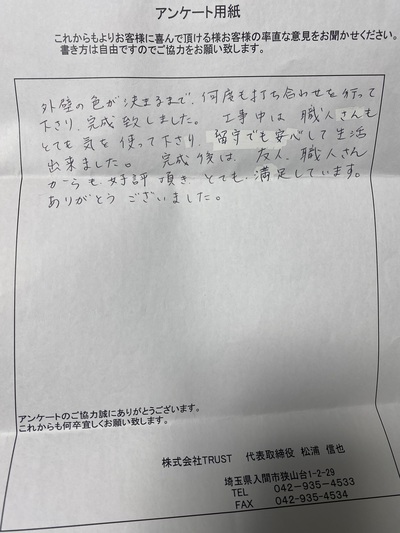 アンケート用紙
これからもよりお客様に喜んで頂ける様お客様の率直な意見をお聞かせください。
書き方は自由ですのでご協力をお願い致します。
外壁の色が決まるまで、何度も打ち合わせを行って
下さり、完成致しました。 工事中は 職人さんも
とても気を使って下さり、留守でも安心して生活
出来ました。 完成後は、友人、職人さん
からも、好評 頂き、とても、満足しています。
ありがとう ございました。
アンケートのご協力誠にありがとうございます。
これからも何卒宜しくお願い致します。
株式会社TRUST 代表取締役 松浦 信也
埼玉県入間市狭山台1-2-29
TEL 042-935-4533
FAX 042-935-4534